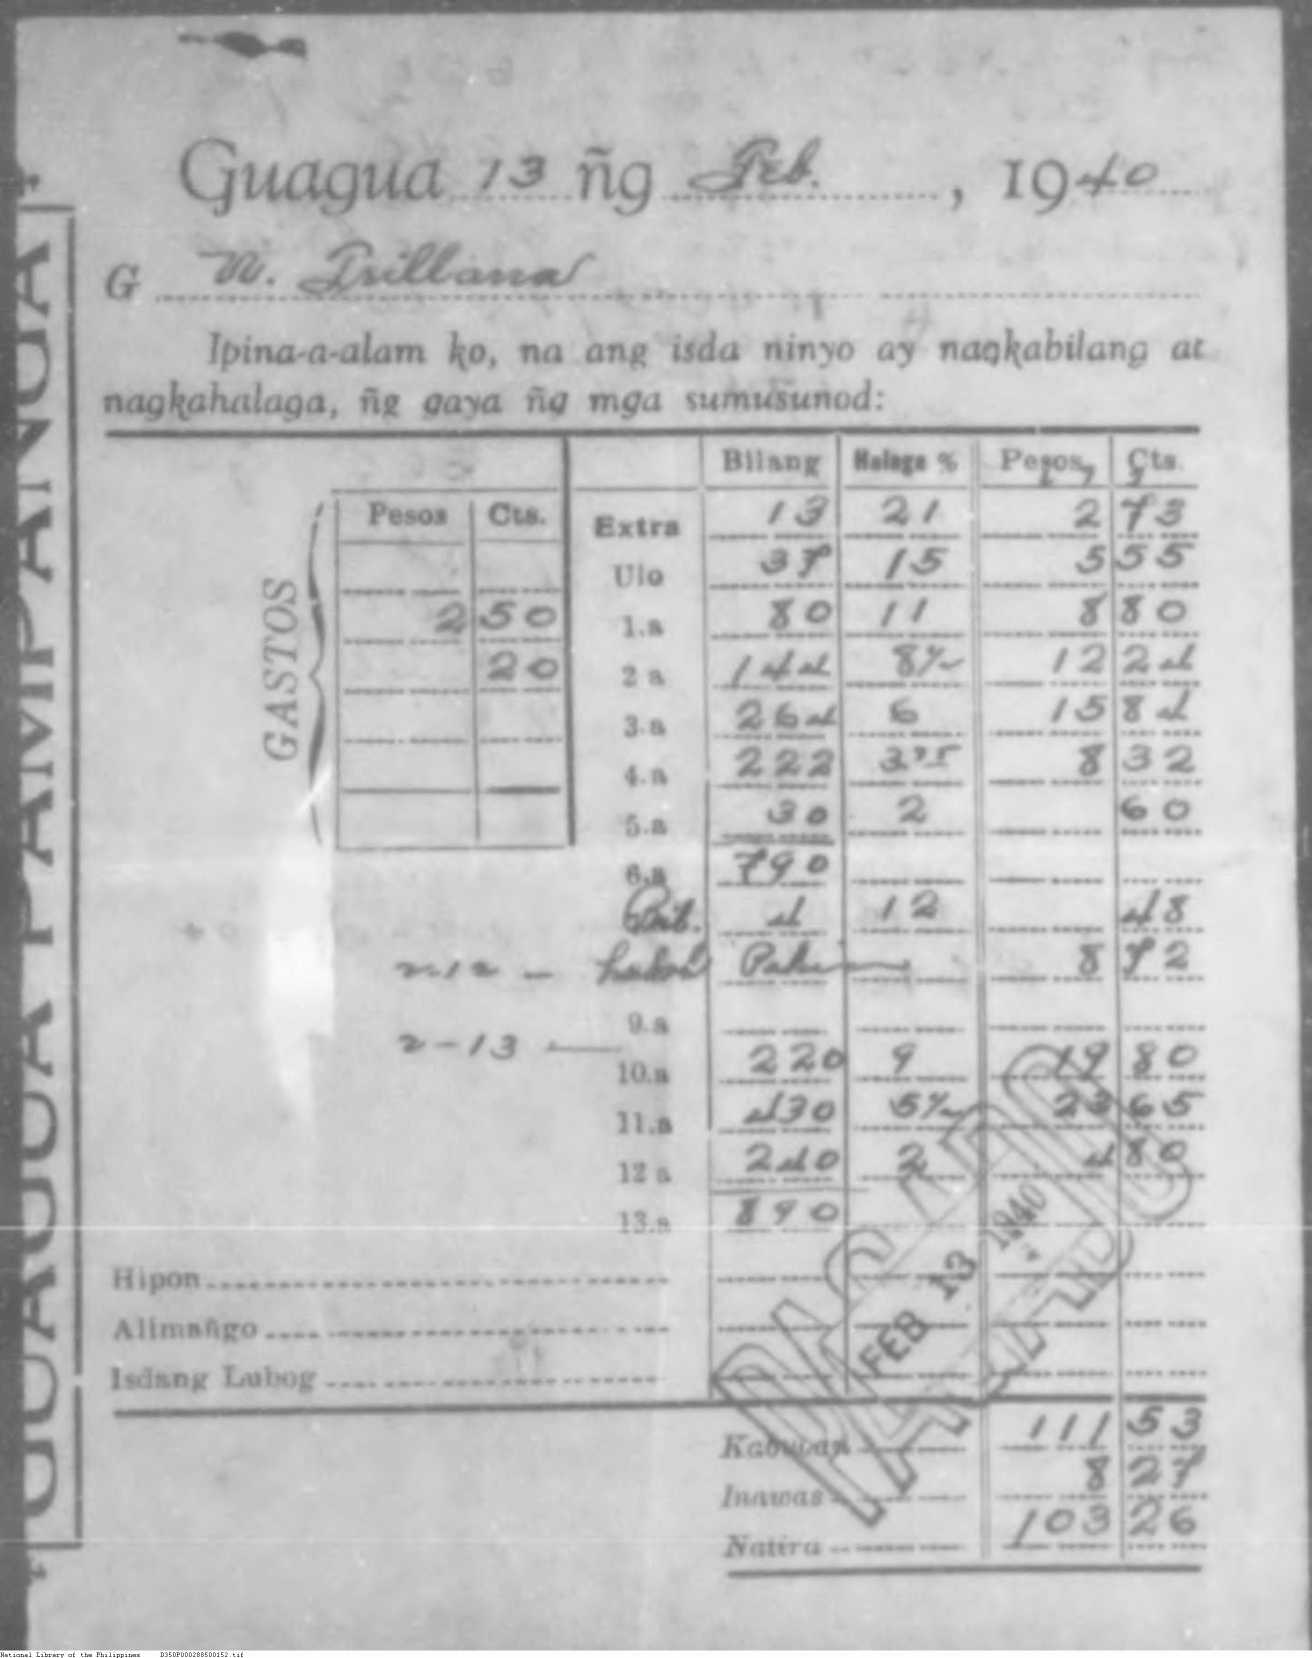 Guagua 13 ñg Feb., 1940
G N. Trillana
Ipina-a-alam ko, na ang isda ninyo ay nagkabilang at
nagkahalaga, ñg gaya ñg mga sumusunod:
GUAGUA PAMPANGA
Bilang Halaga % Pesos Cts.
GASTOS
Pesos Cts.
2 50
20
Extra 13 21 2 73
Ulo 37 15 5 55
1.a 80 11 8 80
2a 144 8½ 12 24
3.a 264 6 15 84
4.a 222 3.75 8 32
5.a 30 2 60
6.a 790
4 12 48
2-12 - 8 72
9.a
2-13
10.a 220 9 19 80
11.a 430 5½ 23 65
12a 240 2 4 80
13.a 890
Hipon
Alimañgo
Isdang Lubog
FEB 13 1940
Kabuoan 111 53
Inawas 8 27
Natira 103 26
National Library of the Philippines D350P000288500152.tif